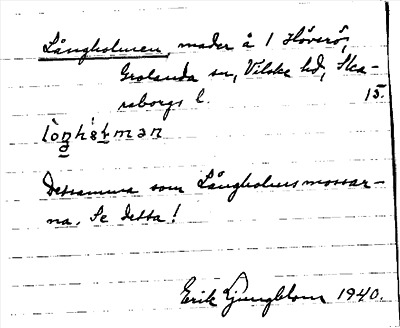 Långholmen, mader å 1 Hövsrö,
Grolanda sn, Vilske hd, Ska-
raborgs l. 15.
Detsamma som Långholmsmossar-
na. Se detta!
Erik Ljungblom 1940.